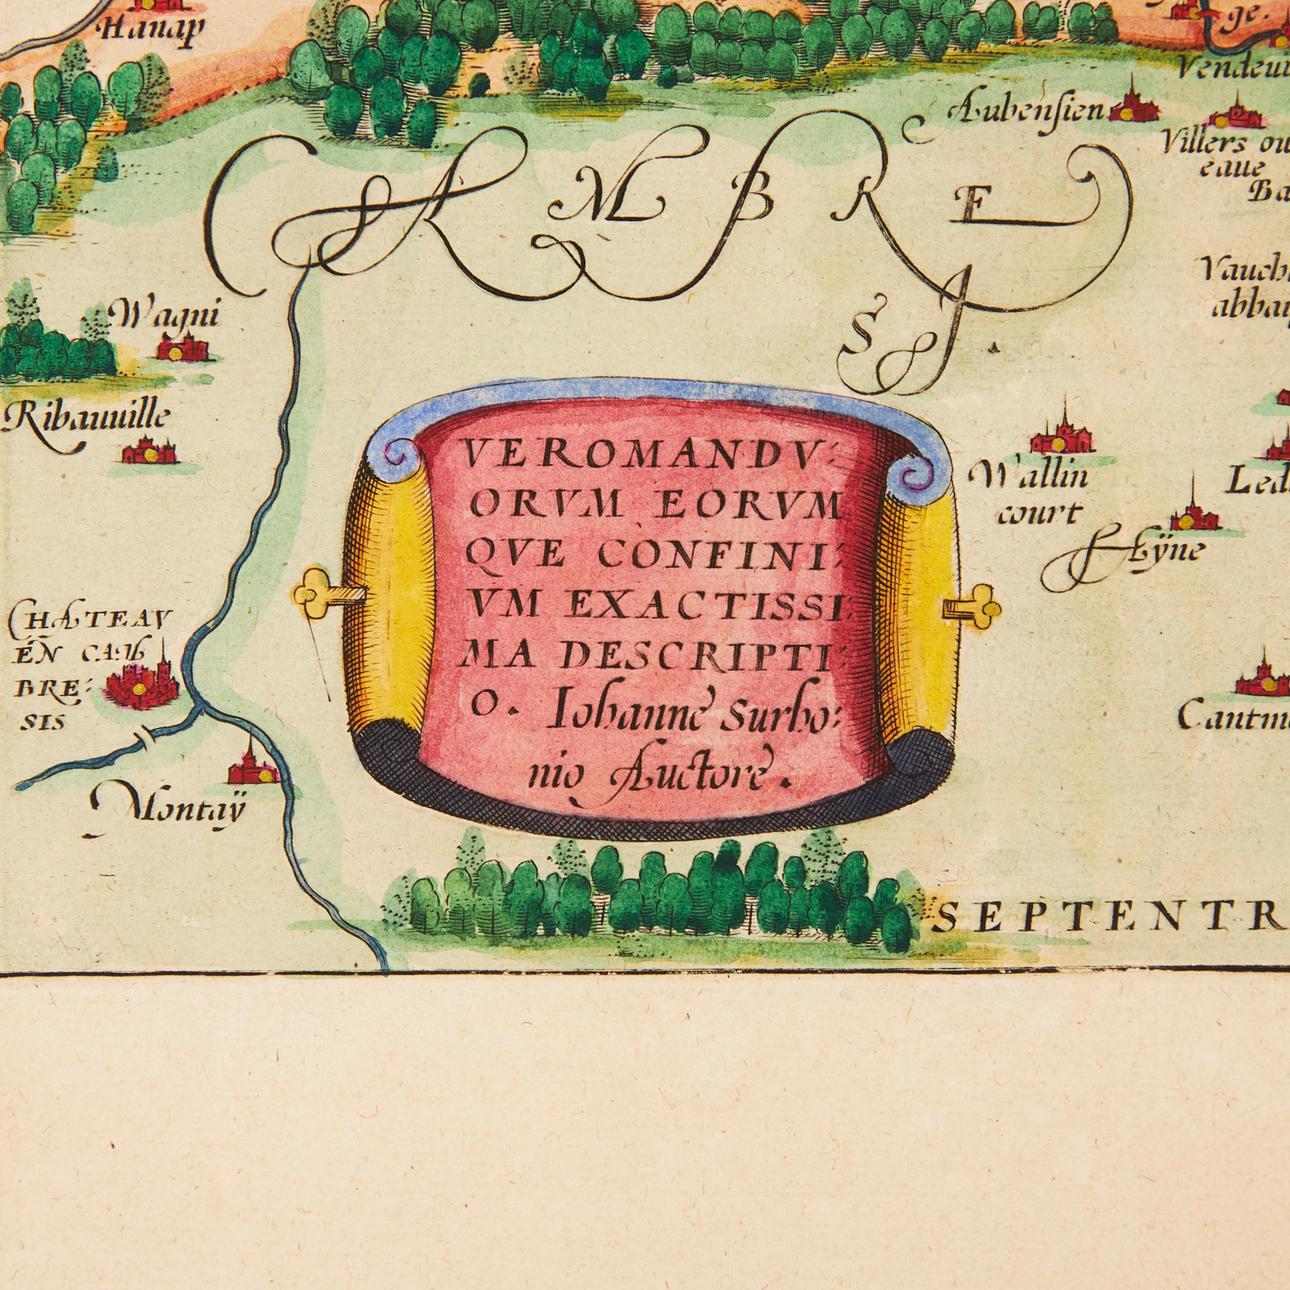 Hanap
ge.
Aubensien
Villers ou
eaue
CAMBRE
SJ.
Wagni
abbay
Ribauuille
VEROMANDV:
ORVM EORVM
QVE CONFINI:
VM EXACTISSI:
MA DESCRIPTI:
O. Iohanne Surho:
nio Auctore.
Wallin
court
Elÿne
CHATEAV
EN CAM
BRE:
SIS
Montaÿ
SEPTENTR